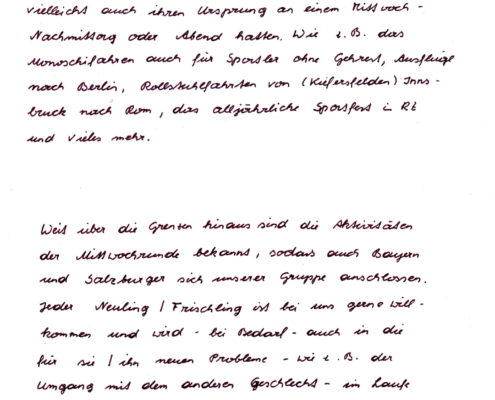 vielleicht auch ihren Ursprung an einem Mittwoch-
Nachmittag oder Abend hatten. Wie z.B. das
Monoschifahren auch für Sportler ohne Gehrest, Ausflüge
nach Berlin, Rollstuhlfahrten von (Kiefersfelden) Inns-
bruck nach Rom, das alljährliche Sportfest in
und vieles mehr.
Weit über die Grenzen hinaus sind die Aktivitäten
der Mittwochrunde bekannt, sodass auch Bayern
und Salzburger sich unserer Gruppe anschlossen.
Jeder Neuling / Frischling ist bei uns gerne will-
kommen und wird - bei Bedarf - auch in die
für sie / ihn neuen Probleme - wie z.B. der
Umgang mit dem anderen Geschlecht - im Laufe